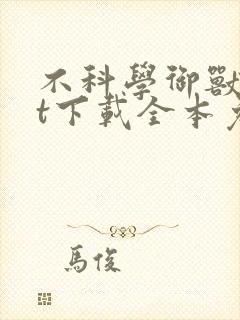 不科學御獸
t下載全本
馬俊